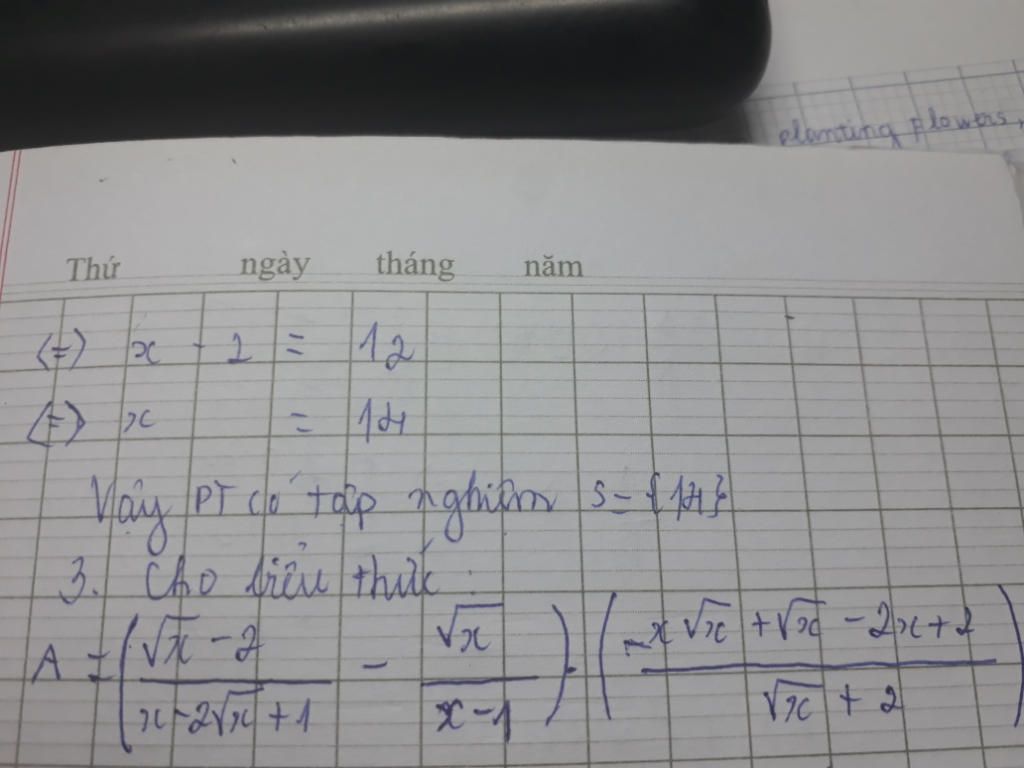 planting Flowers,
Thứ ngày tháng năm
(=) x - 2 = 12
(=) x = 14
Vậy PT có tập nghiệm S = {14}
3. Cho biểu thức :
A = ( (√x - 2)/(x - 2√x + 1) - √x/(x - 1) ) . ( (-x√x + √x - 2x + 2)/(√x + 2) )